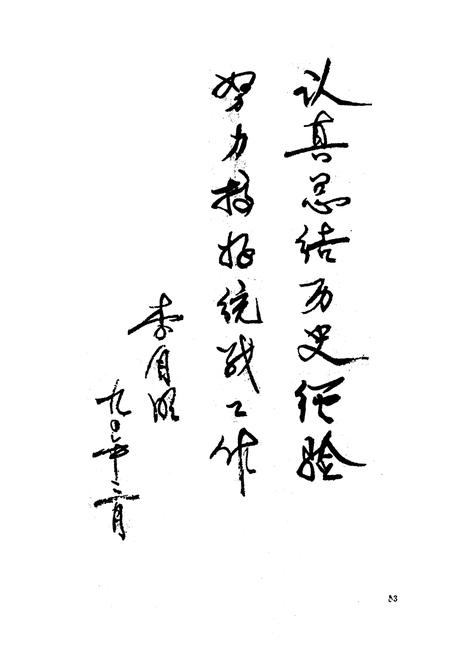 认真总结历史经验
努力搞好统战工作
李月明
九〇年二月
53